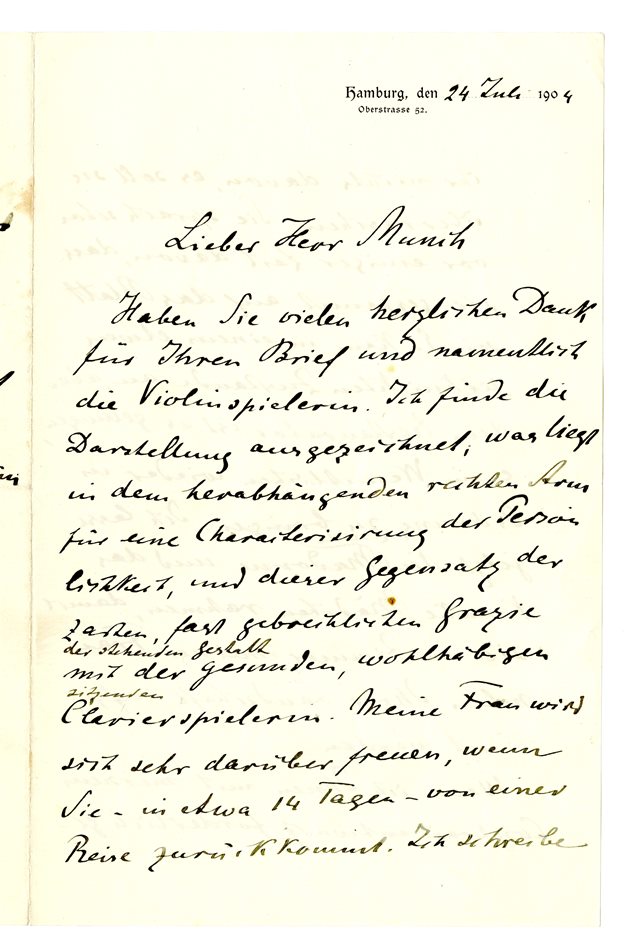 Hamburg, den 24 Juli 1904
Oberstrasse 52.
Lieber Herr Munch
Haben Sie vielen herzlichen Dank
für Ihren Brief und namentlich
die Violinspielerin. Ich finde die
Darstellung ausgezeichnet, was liegt
in dem herabhängenden rechten Arm
für eine Characterisirung der Persön
lichkeit, und dieser Gegensatz der
zarten, fast gebrechlichen Grazie
der stehenden Gestalt
mit der gesunden, wohlhäbigen
sitzenden
Clavierspielerin. Meine Frau wird
sich sehr darüber freuen, wenn
Sie - in etwa 14 Tagen - von einer
Reise zurückkommt. Ich schreibe